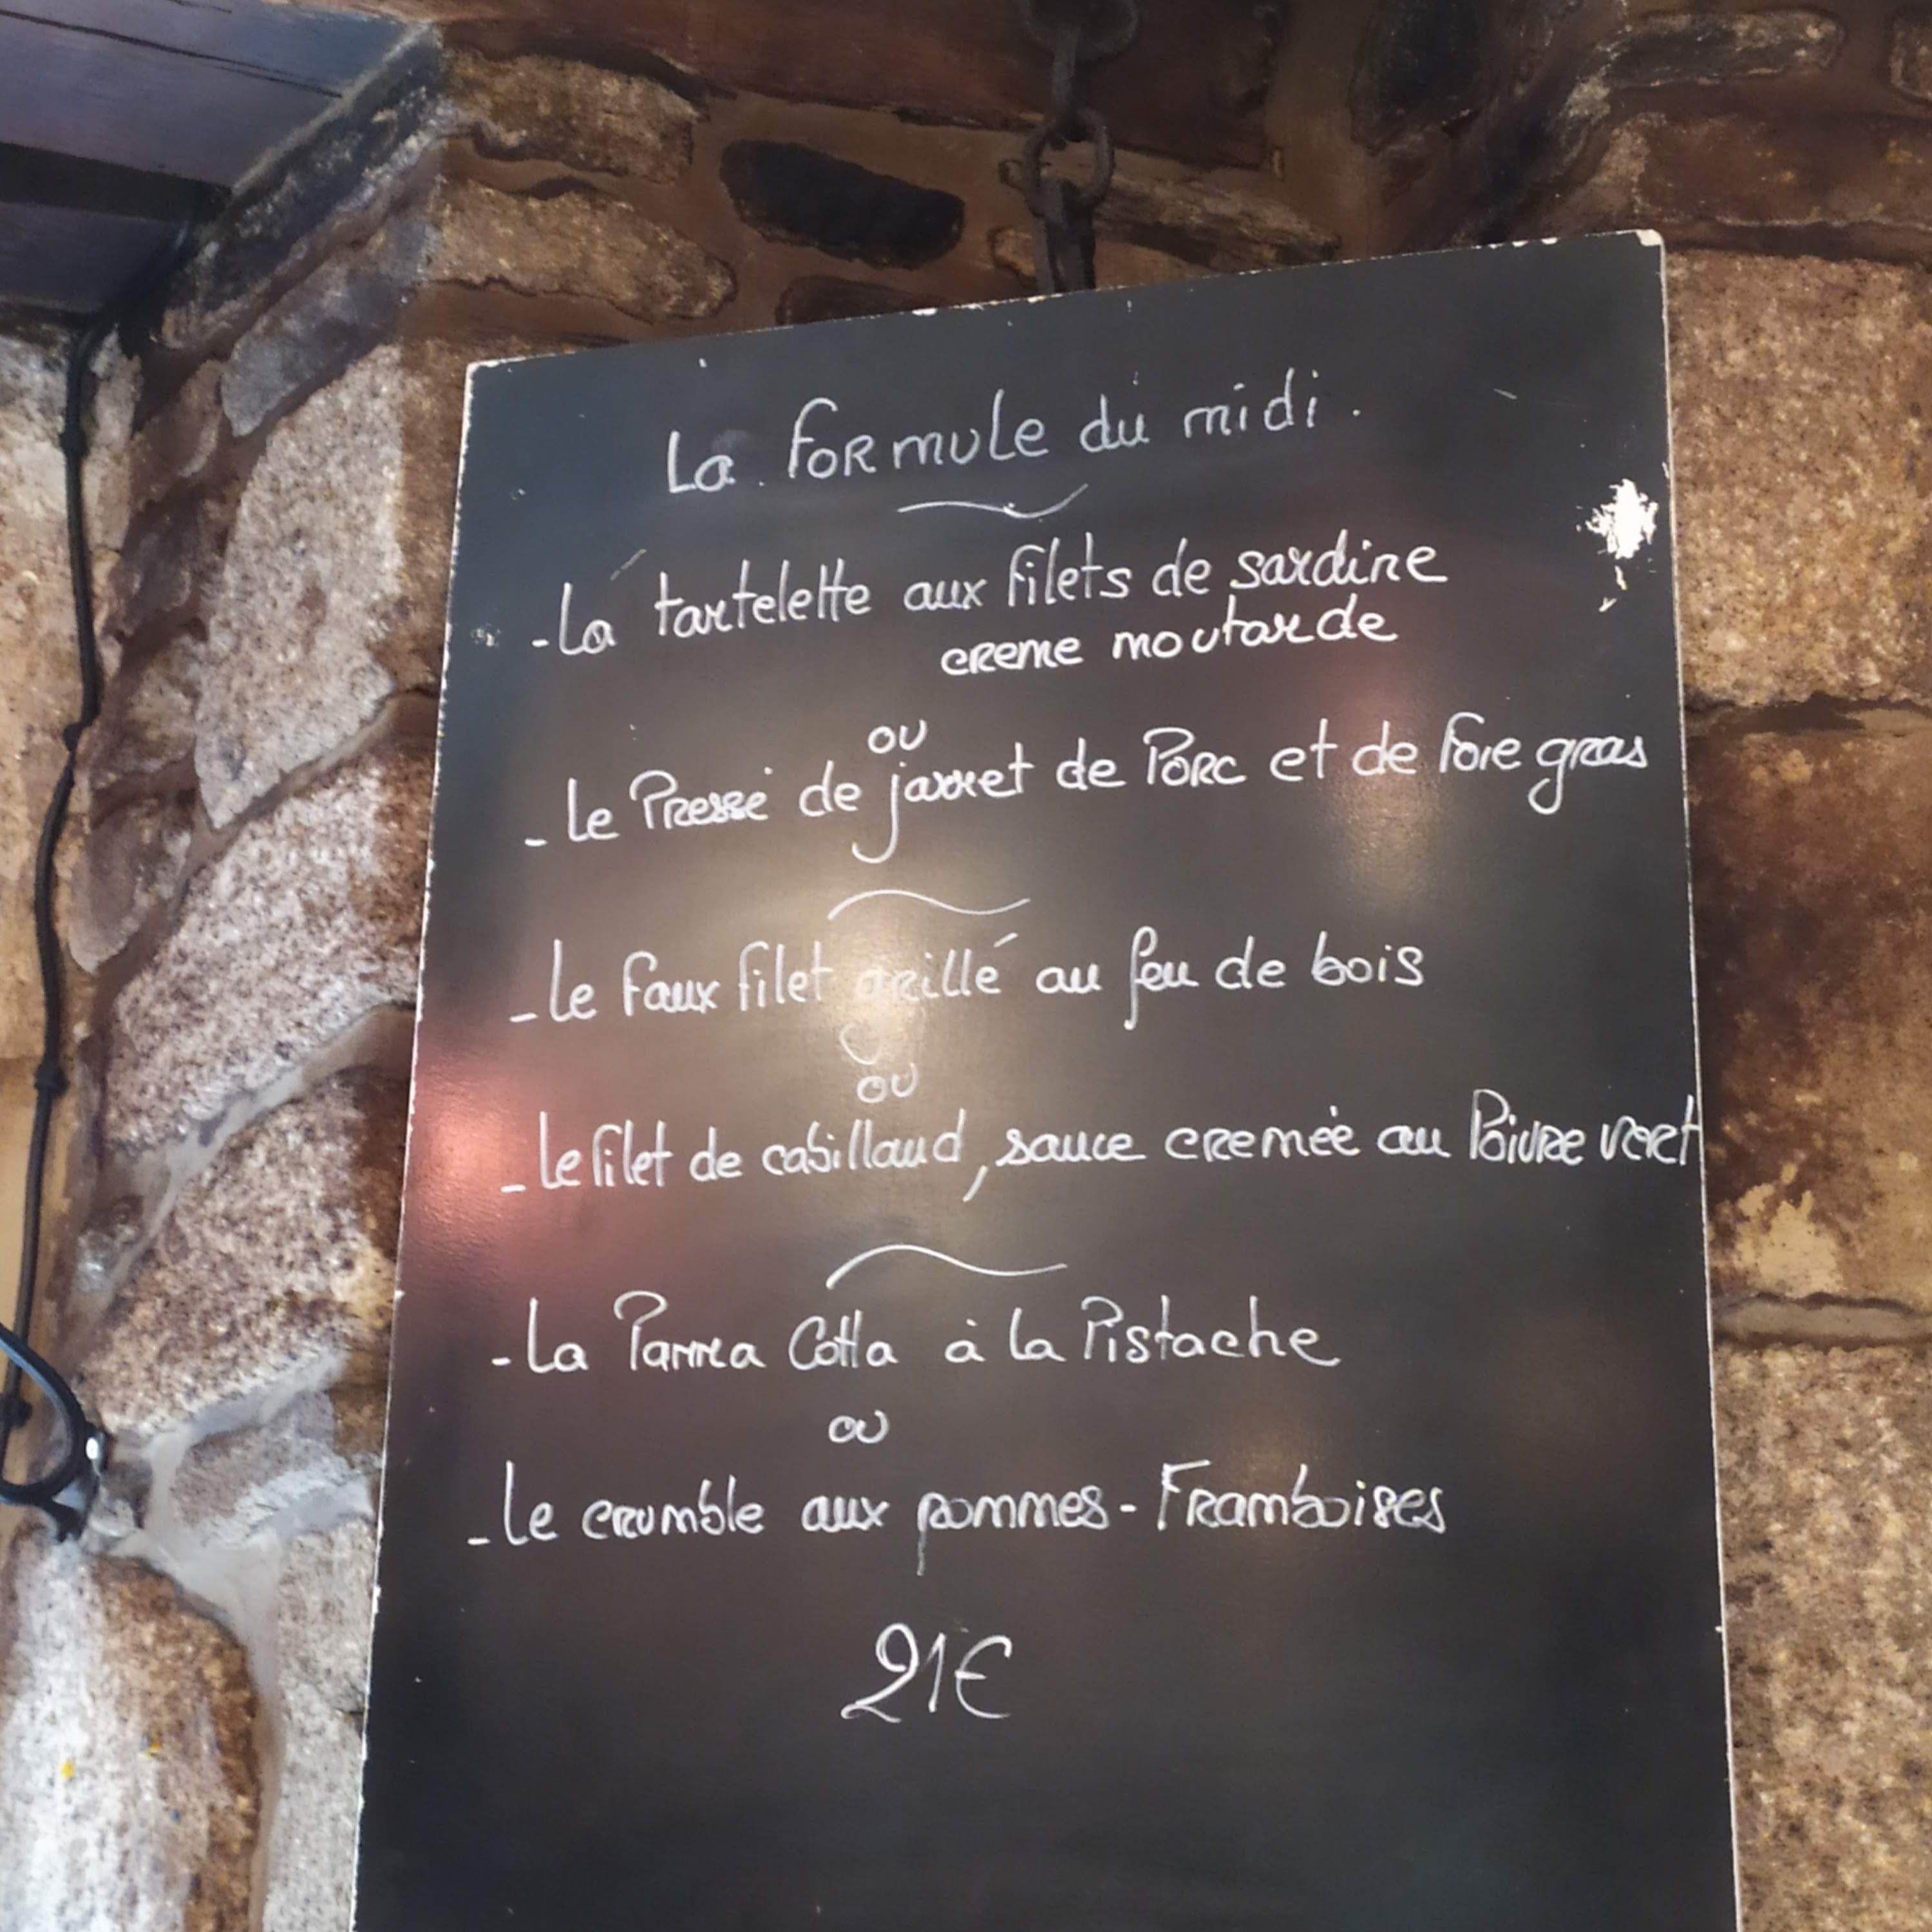 La formule du midi.
- La tartelette aux filets de sardine
creme moutarde
ou
- Le Pressé de jarret de Porc et de Foie gras
- Le faux filet grillé au feu de bois
ou
- Le filet de cabillaud, sauce cremée au Poivre vert
- La Panna Cotta à la Pistache
ou
- Le crumble aux pommes - Framboises
21€